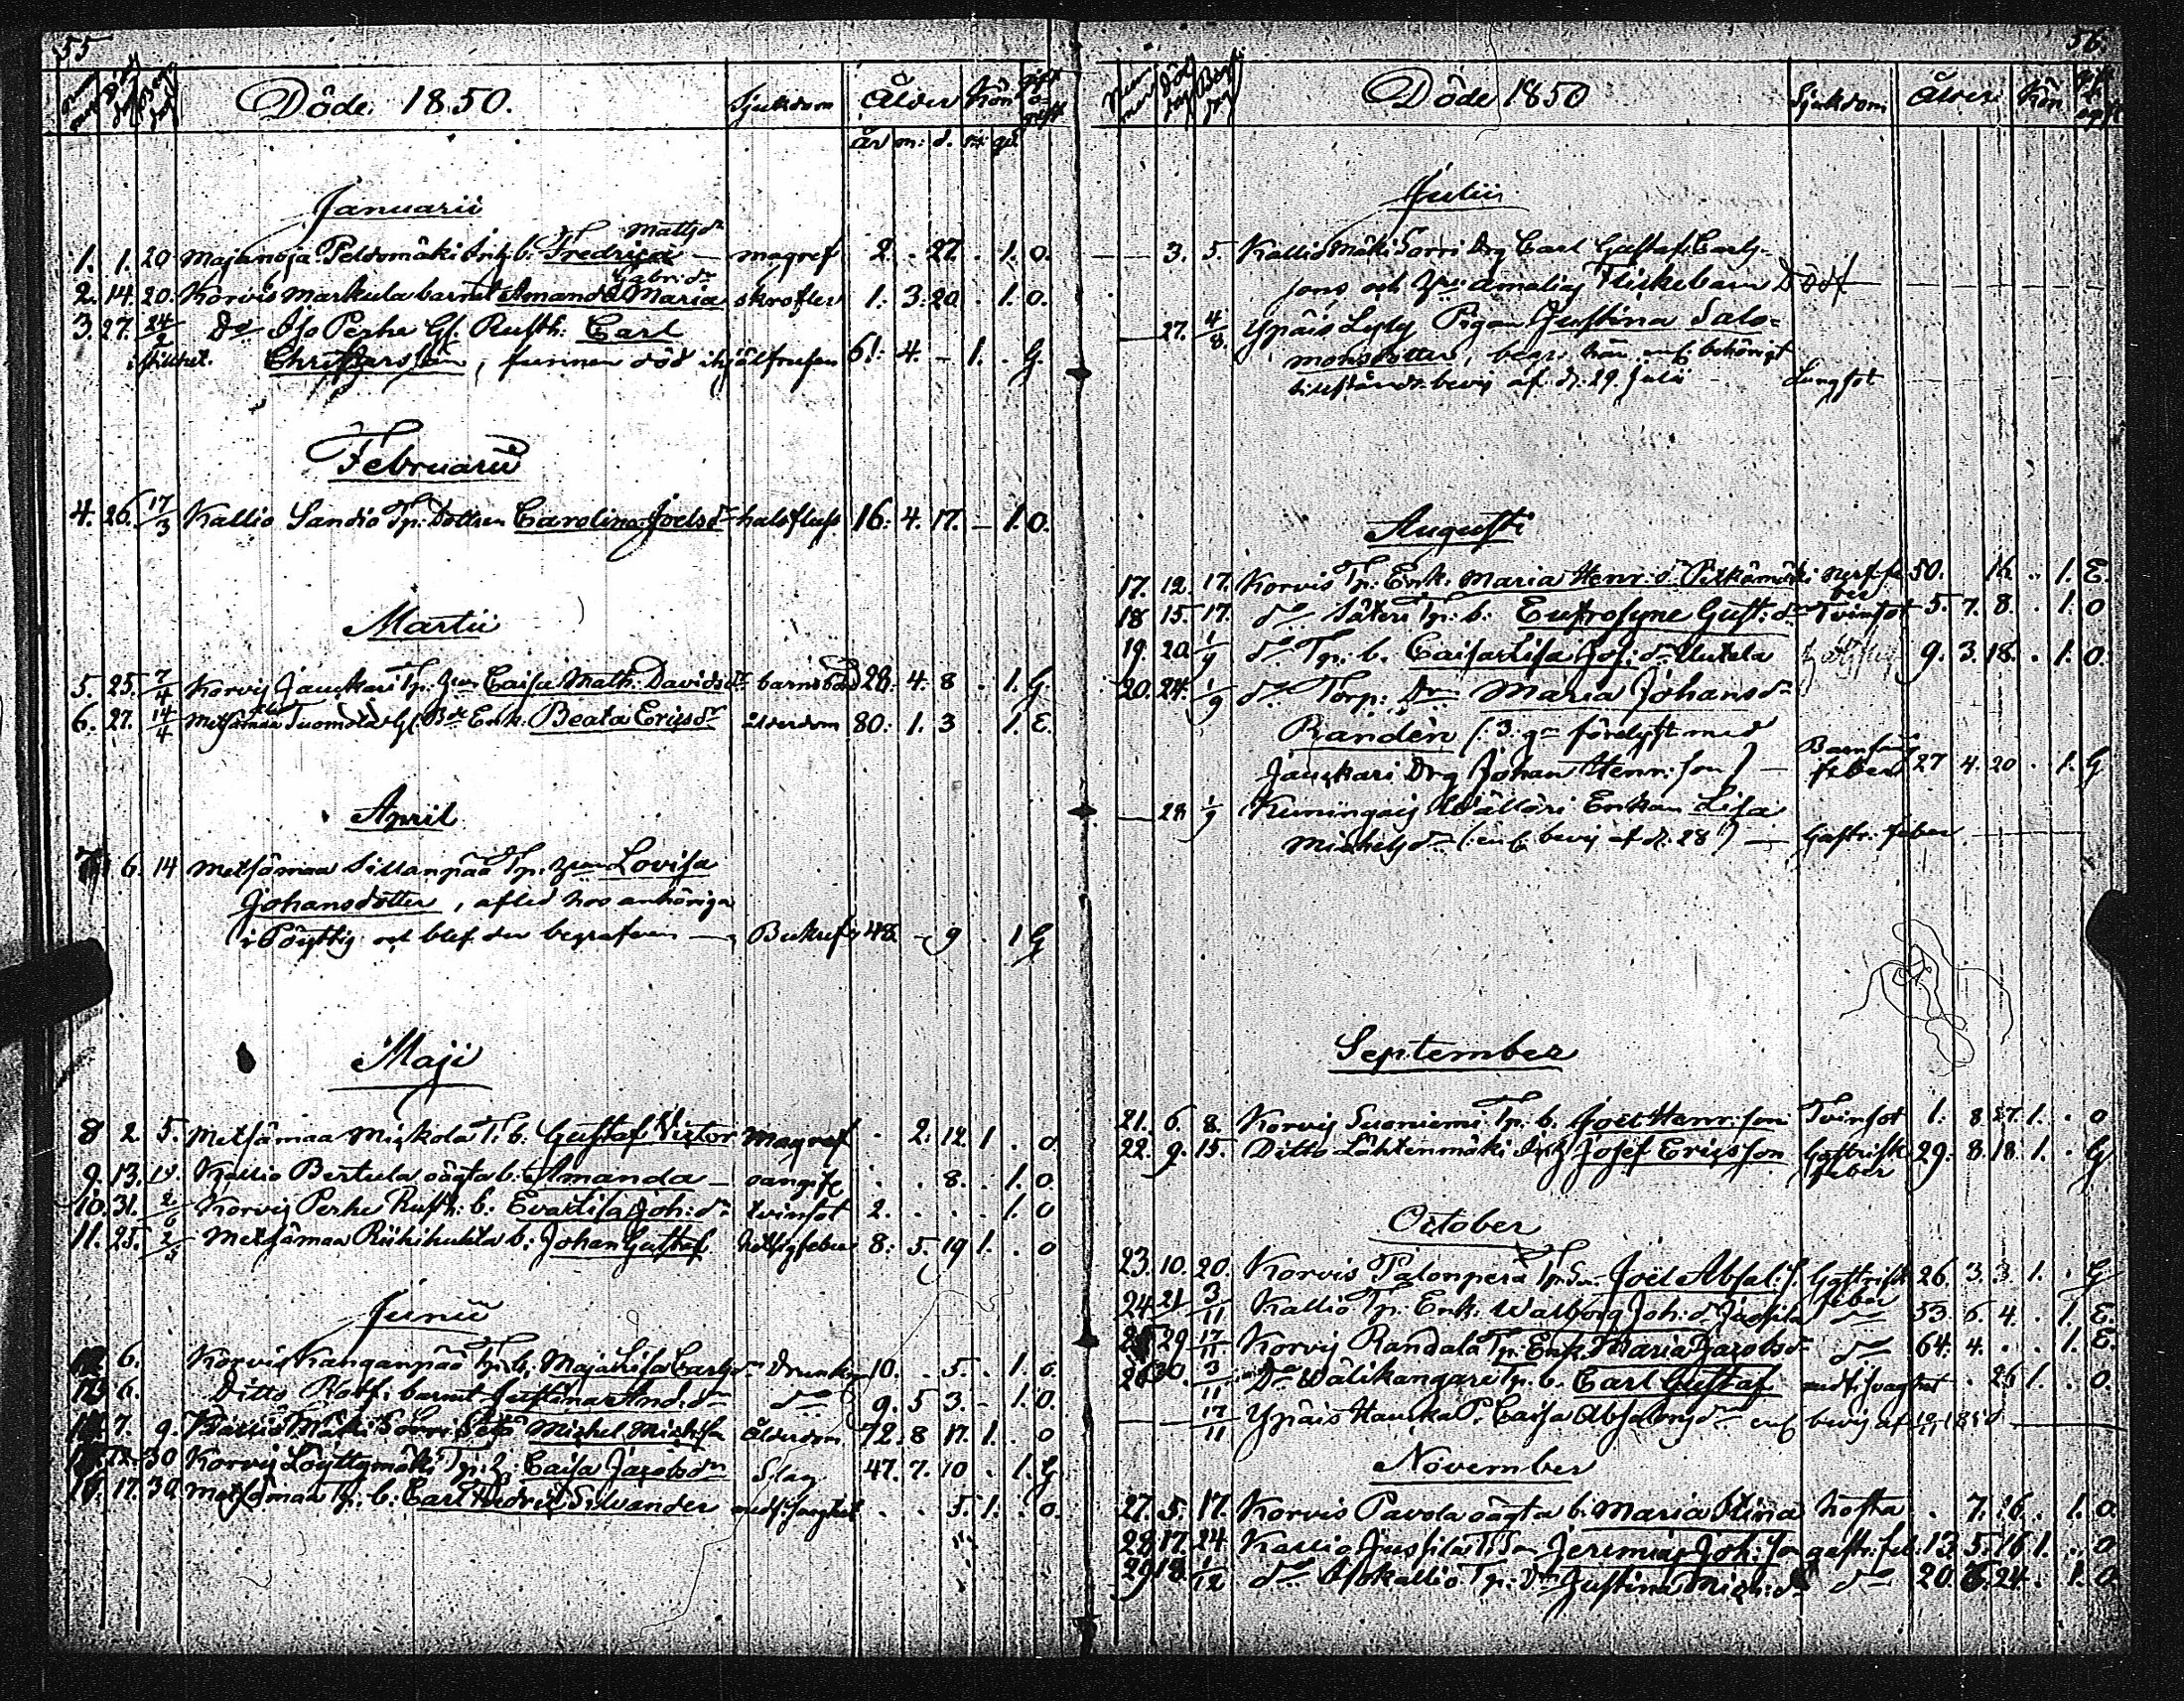 55
Nummer Död dag Begr. dag Döde 1850. Sjukdom Ålder Kön gift o- gift
år m: d. m. qv.
Januarii
Mattsdr
1. 1. 20 Majanoja Peldomäki Inh. b. Fredrica — magref 2. . 27. . 1. O.
Gabr: dr
2. 14. 20. Korvis Markula barnet Amanda Maria skrofler 1. 3. 20 . 1. O.
3. 27. 24/2 Do Iso Perhe Gl. Rusth. Carl
Christersson, funnen död ihjälfrusen 61. 4. – 1. . G.
Februarii
4. 26. 17/3 Kallio Sandio Tp: Dottren Carolina Joelsdr halsfluss 16. 4. 17. – 1. O.
Martii
5. 25. 7/4 Korvis Jauckari Tp. hu Caisa Math. Davidsdr barnsbörd 28. 4. 8 . 1. G.
6. 27. 14/4 Metsämaa Tuomola Gl. Bde Enk. Beata Ericsdr ålderdom 80. 1. 3 . 1. E.
April
7. 6. 14 Metsämaa Sillanpää Tp. hun Lovisa
Johansdotter, afled hos anhöriga
i Pöyttis och blef der begrafven — Bukref 48. – 9 . 1 G
Maji
8 2. 5. Metsämaa Miskola T. b. Gustaf Victor Magref . 2. 12. 1 . o.
9. 13. 19. Kallio Bertula oägta b: Amanda — oangifv. . . 8. . 1. O
10. 31. 2/6 Korvis Perhe Rusth: b. Eva Lisa Joh: dr tvinsot 2. . . . 1. O
11. 25. 2/5 Metsämaa Riihihuhta b: Johan Gustaf hetsigfeber 8. 5. 19 1. . o
Junii
12. 6. Korvis Kanganpää Tp. b. Maja Lisa Carlsdr Drunkn. 10. . 5. . 1. o.
13. 6. Ditto Rotf. barnet Justina And: dr do 9. 5 3. – 1. O.
14. 7. 9. Kallio Mäki Sorri Seto Michel Michelss. ålderdom 72. 8 17. 1. . o
15. 12. 30 Korvis Löyttymäki Tp: h. Caisa Jacobsdr Slag 47. 7. 10 . 1. G
16. 17. 30. Metsämaa Tp. b: Carl Fredric Silvander medf. svaghet . . 5. 1. . o.
56.
Nummer Död dag Begr. dag Döde 1850 Sjukdom Ålder Kön gift o- gift
Julii
— 3. 5. Kallio Mäki Sorri Drg Carl Gustaf Carls-
sons och hus: Amalias Flickebarn Död-
— 27. 4/8. Ypäis Lyly Pigan Justina Salo-
monsdotter, begr. här enl. behörigt
tillstånds bevis af d. 29. Julii — Lungsot
Augusti
17. 12. 17. Korvis Tp: Enk. Maria Henr: dr Pitkämäki nerffe- ber 50. 16. . 1. E.
18 15. 17. do Säteri Tp: b. Eufrosyne Gust: dr Tvinsot 5. 7. 8. . 1. O
19. 20. 1/9 do Tp: b. Caisa Lisa Jos: dr Untela 9. 3. 18. . 1. O.
20. 24. 1/9 do Torp: Dr Maria Johansdr
Randèn (: 3: gr förelyst med
Jauckari Drg Johan Henr: son) — Barnsäng feber 27 4. 20 . 1. G
— 28 1/9 Kuningais Wälläri Enkan Lisa
Michelsdr (: enl. bevis af d. 28) — Gastr: feber
September
21. 6. 8. Korvis Suoniemi Tp. b. Joël Henr: son Tvinsot 1. 8 27. 1. . o
22. 9. 15. Ditto Lähtenmäki Inh. Josef Ericsson Gastrisk feber 29. 8. 18. 1. . G
October
23. 10. 20. Korvis Palonperä Tp. Sn Joël Absal: s. Gastrisk feber 26. 3. 3 1. . G
24. 21 3/11 Kallio Tp: Enk. Walborg Joh: dr Jussila do 53. 6. 4. . 1. E.
25 29. 17/11 Korvis Randala Tp. Enk. Maria Jacobsdr do 64. 4. . . 1. E.
26 30. 3/11 Do Wälikangare Tp. b. Carl Gustaf medf. svaghet . . 26 1. . o.
— 17/11 Ypäis Haucka P. Caisa Absalonsdr enl. bevis af
November
27. 5. 17. Korvis Pavola oägta b. Maria Stina Hosta . 7. 16. . 1. O
28. 17. 24 Kallio Jussila T. Sn Jeremias Joh: son gastr: feb. 13. 5. 16 1. . o
29 18. 1/12 do Isokallio Tp: Dr Justina Mich: dr do 20. 6. 24. . 1. O